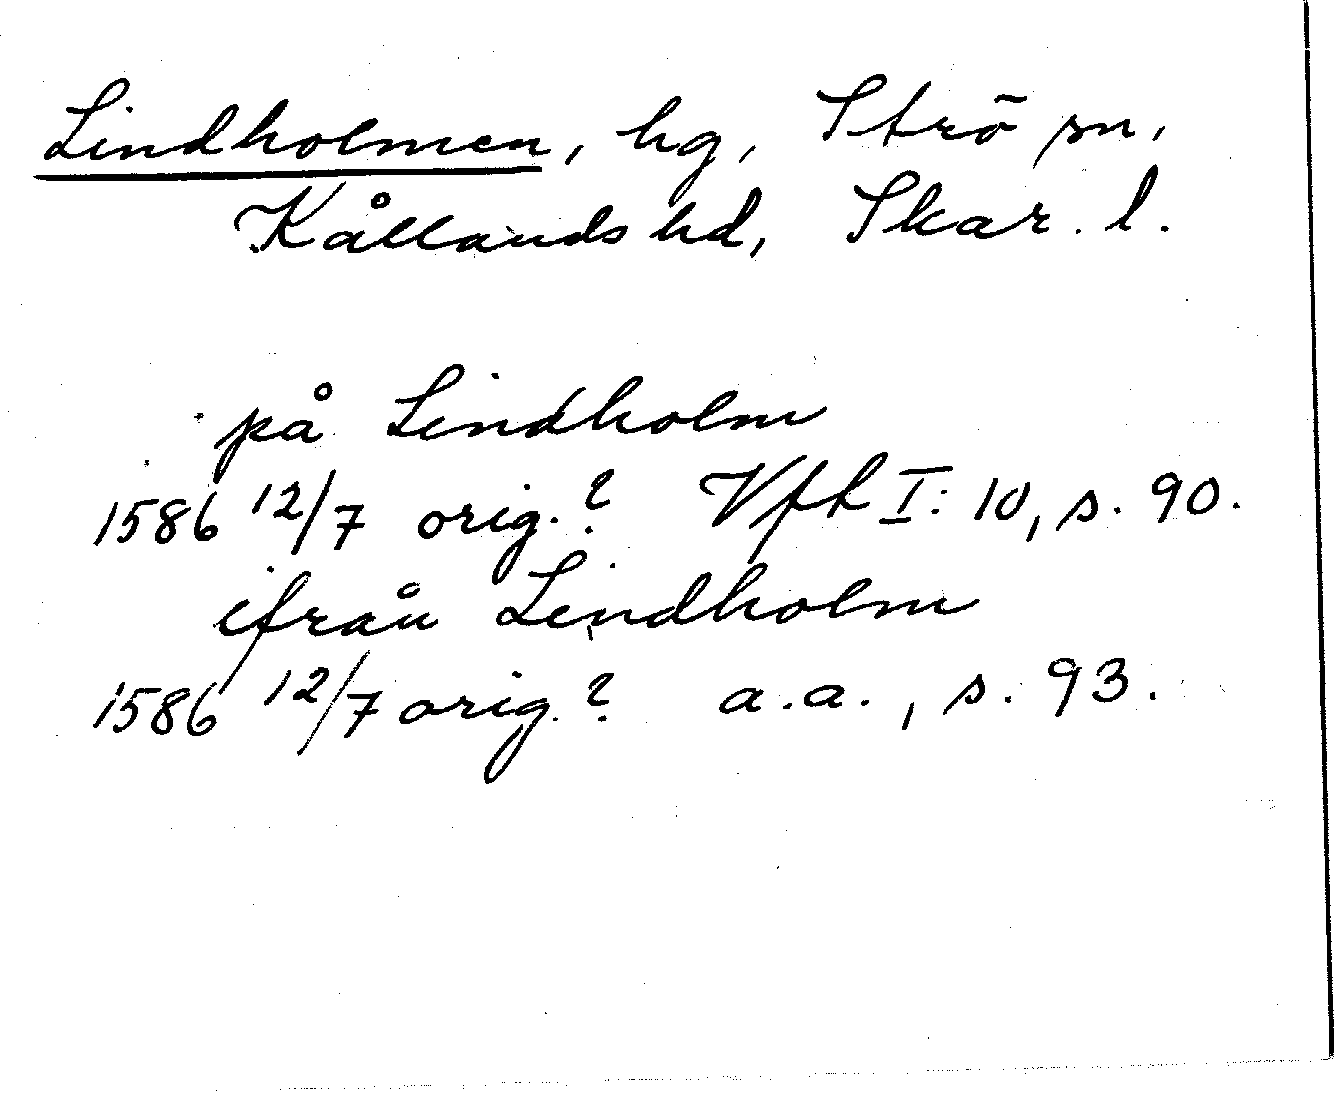 Lindholmen, hg, Strö sn,
Kållands hd, Skar. l.
på Lindholm
1586 12/7 orig.? Vfh I: 10, s. 90.
ifrån Lindholm
1586 12/7 orig.? a.a., s. 93.